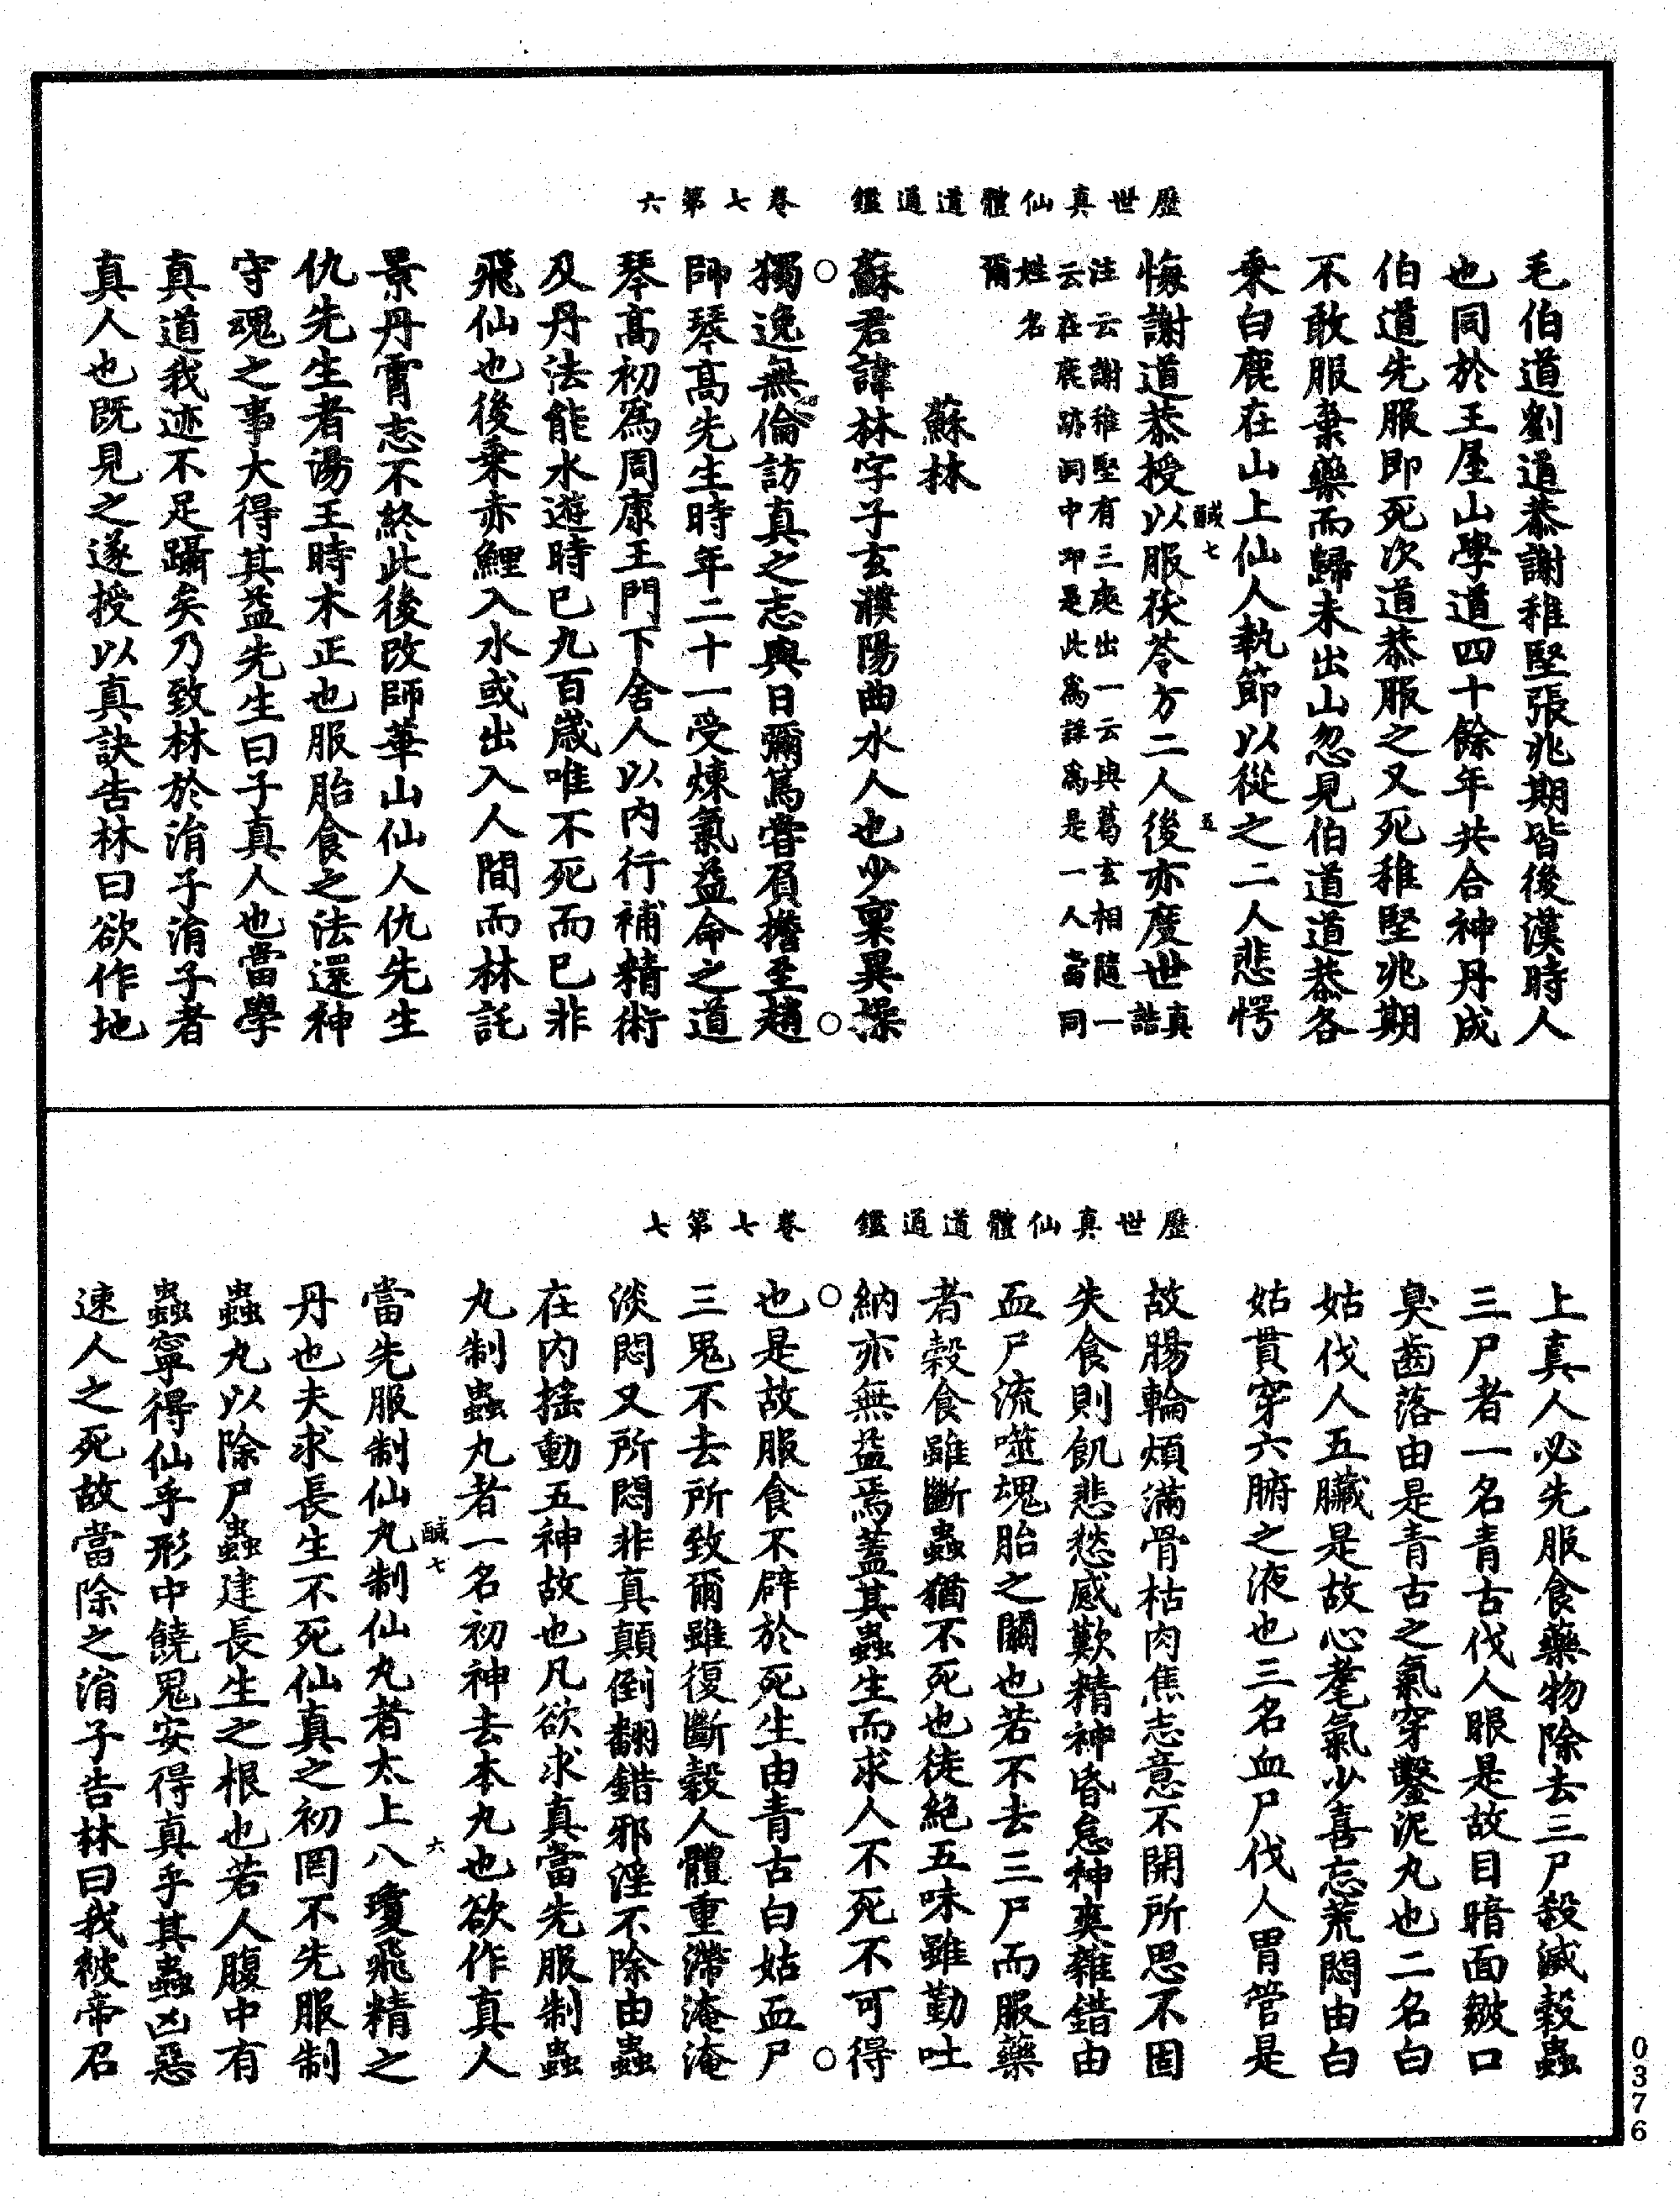 歷世真仙體道通鑑　卷七第六
毛伯道劉道恭謝稚堅張兆期皆後漢時人
也同於王屋山學道四十餘年共合神丹成
伯道先服即死次道恭服之又死稚堅兆期
不敢服棄藥而歸未出山忽見伯道道恭各
乘白鹿在山上仙人執節以從之二人悲愕
悔謝道恭授以服茯苓方二人後亦度世真誥
注云謝稚堅有三庾出一云與葛玄相隨一
云在鹿跡洞中即是此爲詳爲是一人當同
姓名
爾
鹹七
五
蘇林
蘇君諱林字子玄濮陽曲水人也少稟異操
獨逸無倫訪真之志與日彌篤嘗負擔至趙
師琴高先生時年二十一受煉氣益命之道
琴高初爲周康王門下舍人以內行補精術
及丹法能水遊時已九百歲唯不死而已非
飛仙也後乘赤鯉入水或出入人間而林託
景丹霄志不終此後改師華山仙人仇先生
仇先生者湯王時木正也服胎食之法還神
守魂之事大得其益先生曰子真人也當學
真道我迹不足躡矣乃致林於涓子涓子者
真人也既見之遂授以真訣告林曰欲作地
歷世真仙體道通鑑　卷七第七
上真人必先服食藥物除去三尸殺滅穀蟲
三尸者一名青古伐人眼是故目暗面皺口
臭齒落由是青古之氣穿鑿泥丸也二名白
姑伐人五臟是故心耄氣少喜忘荒悶由白
姑貫穿六腑之液也三名血尸伐人胃管是
故腸輪煩滿骨枯肉焦志意不開所思不固
失食則飢悲愁感歎精神昏怠神爽雜錯由
血尸流噬魂胎之關也若不去三尸而服藥
者穀食雖斷蟲猶不死也徒絕五味雖勤吐
納亦無益焉蓋其蟲生而求人不死不可得
也是故服食不辟於死生由青古白姑血尸
三鬼不去所致爾雖復斷穀人體重滯淹淹
淡悶又所悶非真顛倒翻錯邪淫不除由蟲
在內搖動五神故也凡欲求真當先服制蟲
丸制蟲丸者一名初神去本丸也欲作真人
當先服制仙丸制仙丸者太上八瓊飛精之
鹹七
六
丹也夫求長生不死仙真之初罔不先服制
蟲丸以除尸蟲建長生之根也若人腹中有
蟲寧得仙乎形中饒鬼安得真乎其蟲凶惡
速人之死故當除之涓子告林曰我被帝召
0376